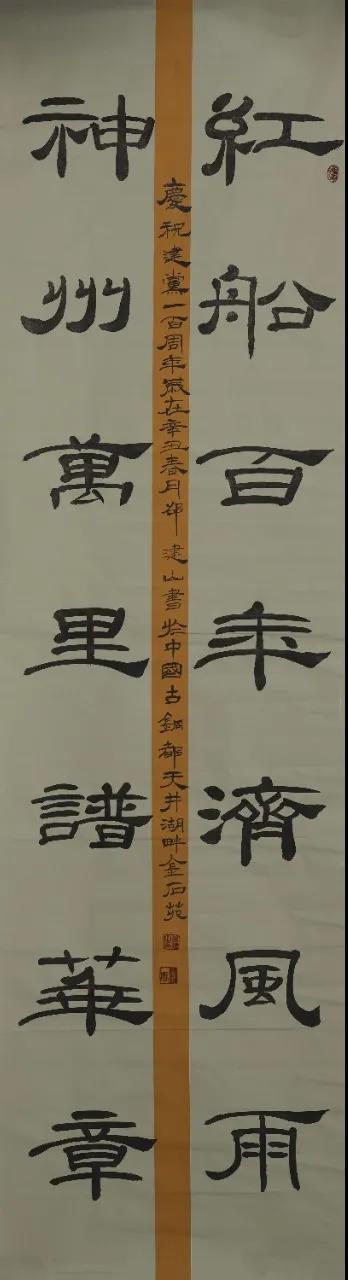 紅船百年濟風雨
神州萬里譜華章
慶祝建黨一百周年歲在辛丑春月邵建山書於中國古銅都天井湖畔金石苑